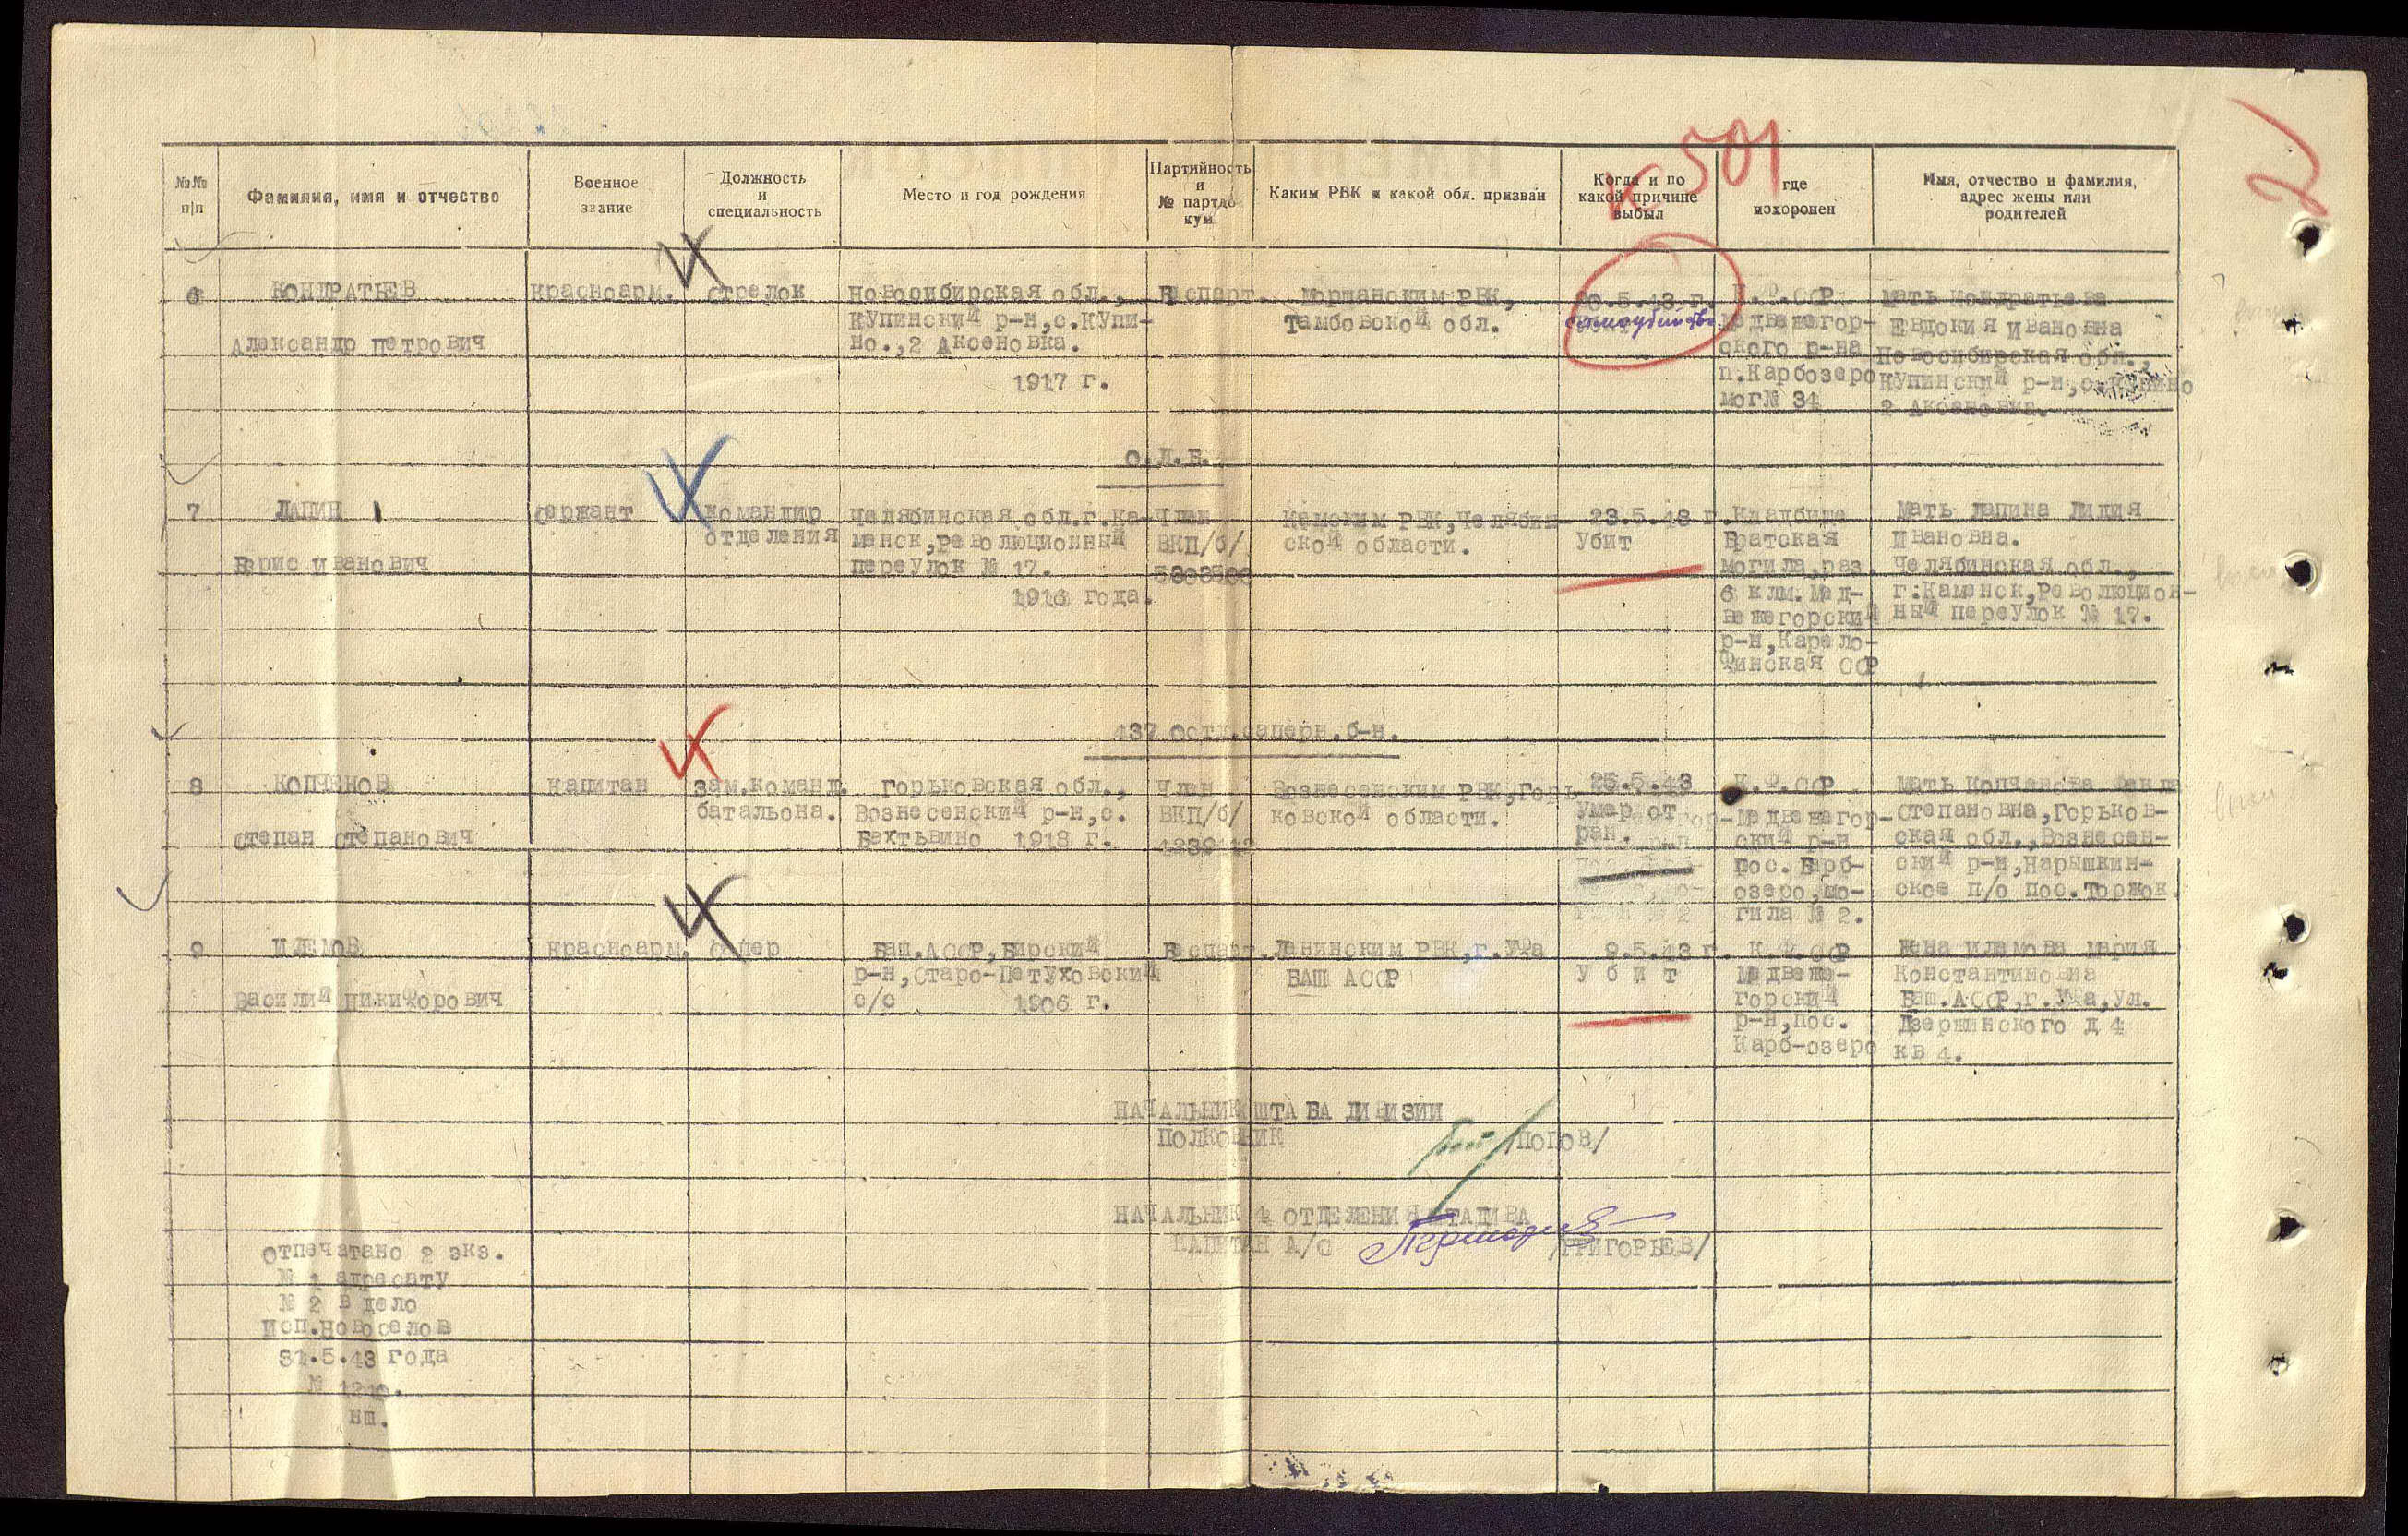 К 501
2
№№ п|п
Фамилия, имя и отчество
Военное звание
Должность и специальность
Место и год рождения
Партийность и № партдокум
Каким РВК и какой обл. призван
Когда и по какой причине выбыл
где похоронен
Имя, отчество и фамилия, адрес жены или родителей
6
КОНДРАТЬЕВ
Александр Петрович
Красноарм.
стрелок
Новосибирская обл.,
Купинский р-н, с. Купи-
но., 2 Аксеновка.
1917 г.
Беспарт.
Моршанским РВК,
Тамбовской обл.
самоубийство
К.Ф.ССР
Медвежегор-
ского р-на
п.Карбозеро
мог№ 34
Мать Кондратьева
Евдокия Ивановна
Новосибирская обл.,
Купинский р-н, с.Купино
2 Аксеновка.
О.Л.Б.
7
ЛАПИН
Борис Иванович
Сержант
Командир
отделения
Челябинская обл.г.Ка-
менск, революционный
переулок № 17.
1916 года.
Член
ВКП/б/
Каменским РВК, Челябин-
ской области.
23.5.43 г.
Убит
Кладбище
Братская
могила, раз.
6 клм. Мед-
вежегорский
р-н, Карело-
Финская ССР
Мать Лапина Лидия
Ивановна.
Челябинская обл.,
г.Каменск, Революцион-
ный переулок № 17.
437 Отд.саперн.б-н.
8
КОПЧЕНОВ
Степан Степанович
Капитан
Зам.команд.
батальона.
Горьковская обл.,
Вознесенский р-н, с.
Бахтывино 1918 г.
Член
ВКП/б/
Вознесенским РВК, Горь-
ковской области.
25.5.43
Умер от
ран.
К.Ф.ССР
Медвежегор-
ский р-н
пос. Карб-
озеро, мо-
гила № 2.
Мать Копченова Фекла
Степановна, Горьков-
ская обл., Вознесен-
ский р-н, Нарышкин-
ское п/о пос.Торжок.
9
ИЛЕМОВ
Василий Никифорович
Красноарм.
сапер
Баш.АССР, Бирский
р-н, Старо-Петуховский
с/с 1906 г.
Беспарт.
Ленинским РВК, г.Уфа
БАШ АССР
9.5.43 г.
У б и т
К.Ф.ССР
Медвеже-
горский
р-н, пос.
Карб-озеро
Жена Илемова Мария
Константиновна
Баш.АССР, г.Уфа, ул.
Дзержинского д 4
кв 4.
НАЧАЛЬНИК ШТАБА ДИВИЗИИ
ПОЛКОВНИК /ПОПОВ/
НАЧАЛЬНИК 4 ОТДЕЛЕНИЯ ШТАДИВА
КАПИТАН А/С /ГРИГОРЬЕВ/
Отпечатано 2 экз.
№ 1 адресату
№ 2 в дело
Исп.Новоселов
31.5.43 года
№ 1210.
нш.